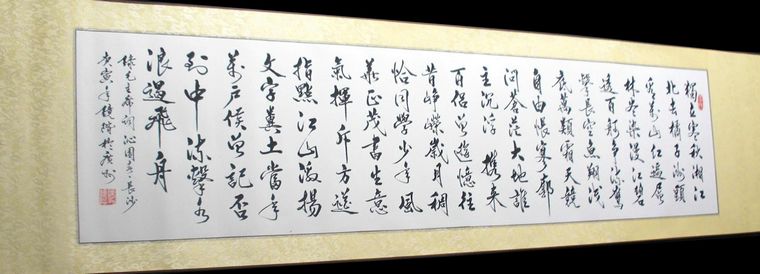 獨立寒秋湘江
北去橘子洲頭
看萬山紅遍層
林盡染漫江碧
透百舸争流鷹
擊長空魚翔淺
底萬類霜天競
自由悵寥廓
問蒼茫大地誰
主沉浮 携来
百侣曾遊憶往
昔崢嶸歲月稠
恰同學少年風
華正茂書生意
氣揮斥方遒
指點江山激揚
文字糞土當年
萬戶侯曾記否
到中流擊水
浪遏飛舟
錄毛主席詞沁園春長沙
庚寅年 於廣州